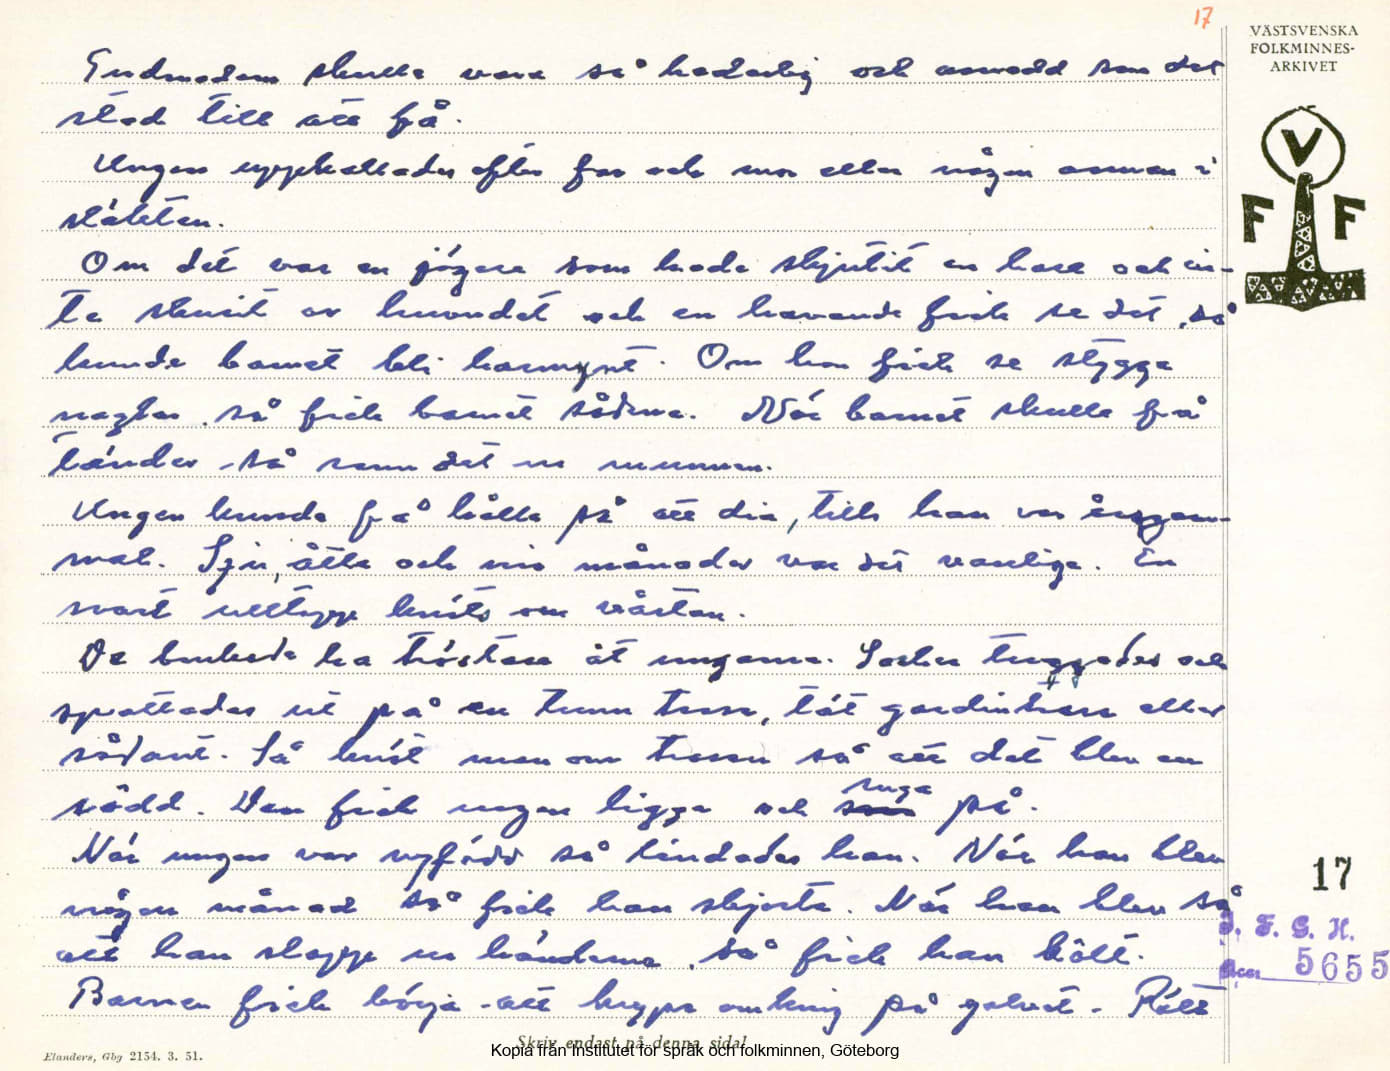 17
VÄSTSVENSKA
FOLKMINNES-
ARKIVET
V
F F
Gudmodern skulle vara så hederlig och ansedd som det
stod till att få.
Ungen uppkallades efter far och mor eller någon annan i
släkten.
Om det var en jägare som hade skjutit en hare och in-
te skurit av huvudet och en havande fick se det, så
kunde barnet bli harmynt. Om hon fick se stygga
naglar, så fick barnet sådana. När barnet skulle få
tänder, så rann det ur munnen.
Ungen kunde få hålla på att dia, tills han var årsgam-
mal. Sju, åtta och nio månader var det vanliga. En
svart ulltapp knöts om vårtan.
De brukade ha tröstare åt ungarna. Socker tuggades och
spottades ut på en tunn trasa, tät gardintrasa eller
sådant. Så knöt man om trasan så att det blev en
södd. Den fick ungen ligga och suga på.
När ungen var nyfödd så lindades han. När han blev
någon månad så fick han skjorta. När han blev så
att han slapp ur händerna, så fick han kolt.
Barnen fick börja att krypa omkring på golvet. Rätt
17
I. F. G. H.
Acc. 5655
Skriv endast på denna sida!
Kopia från Institutet för språk och folkminnen, Göteborg
Elanders, Gbg 2154. 3. 51.